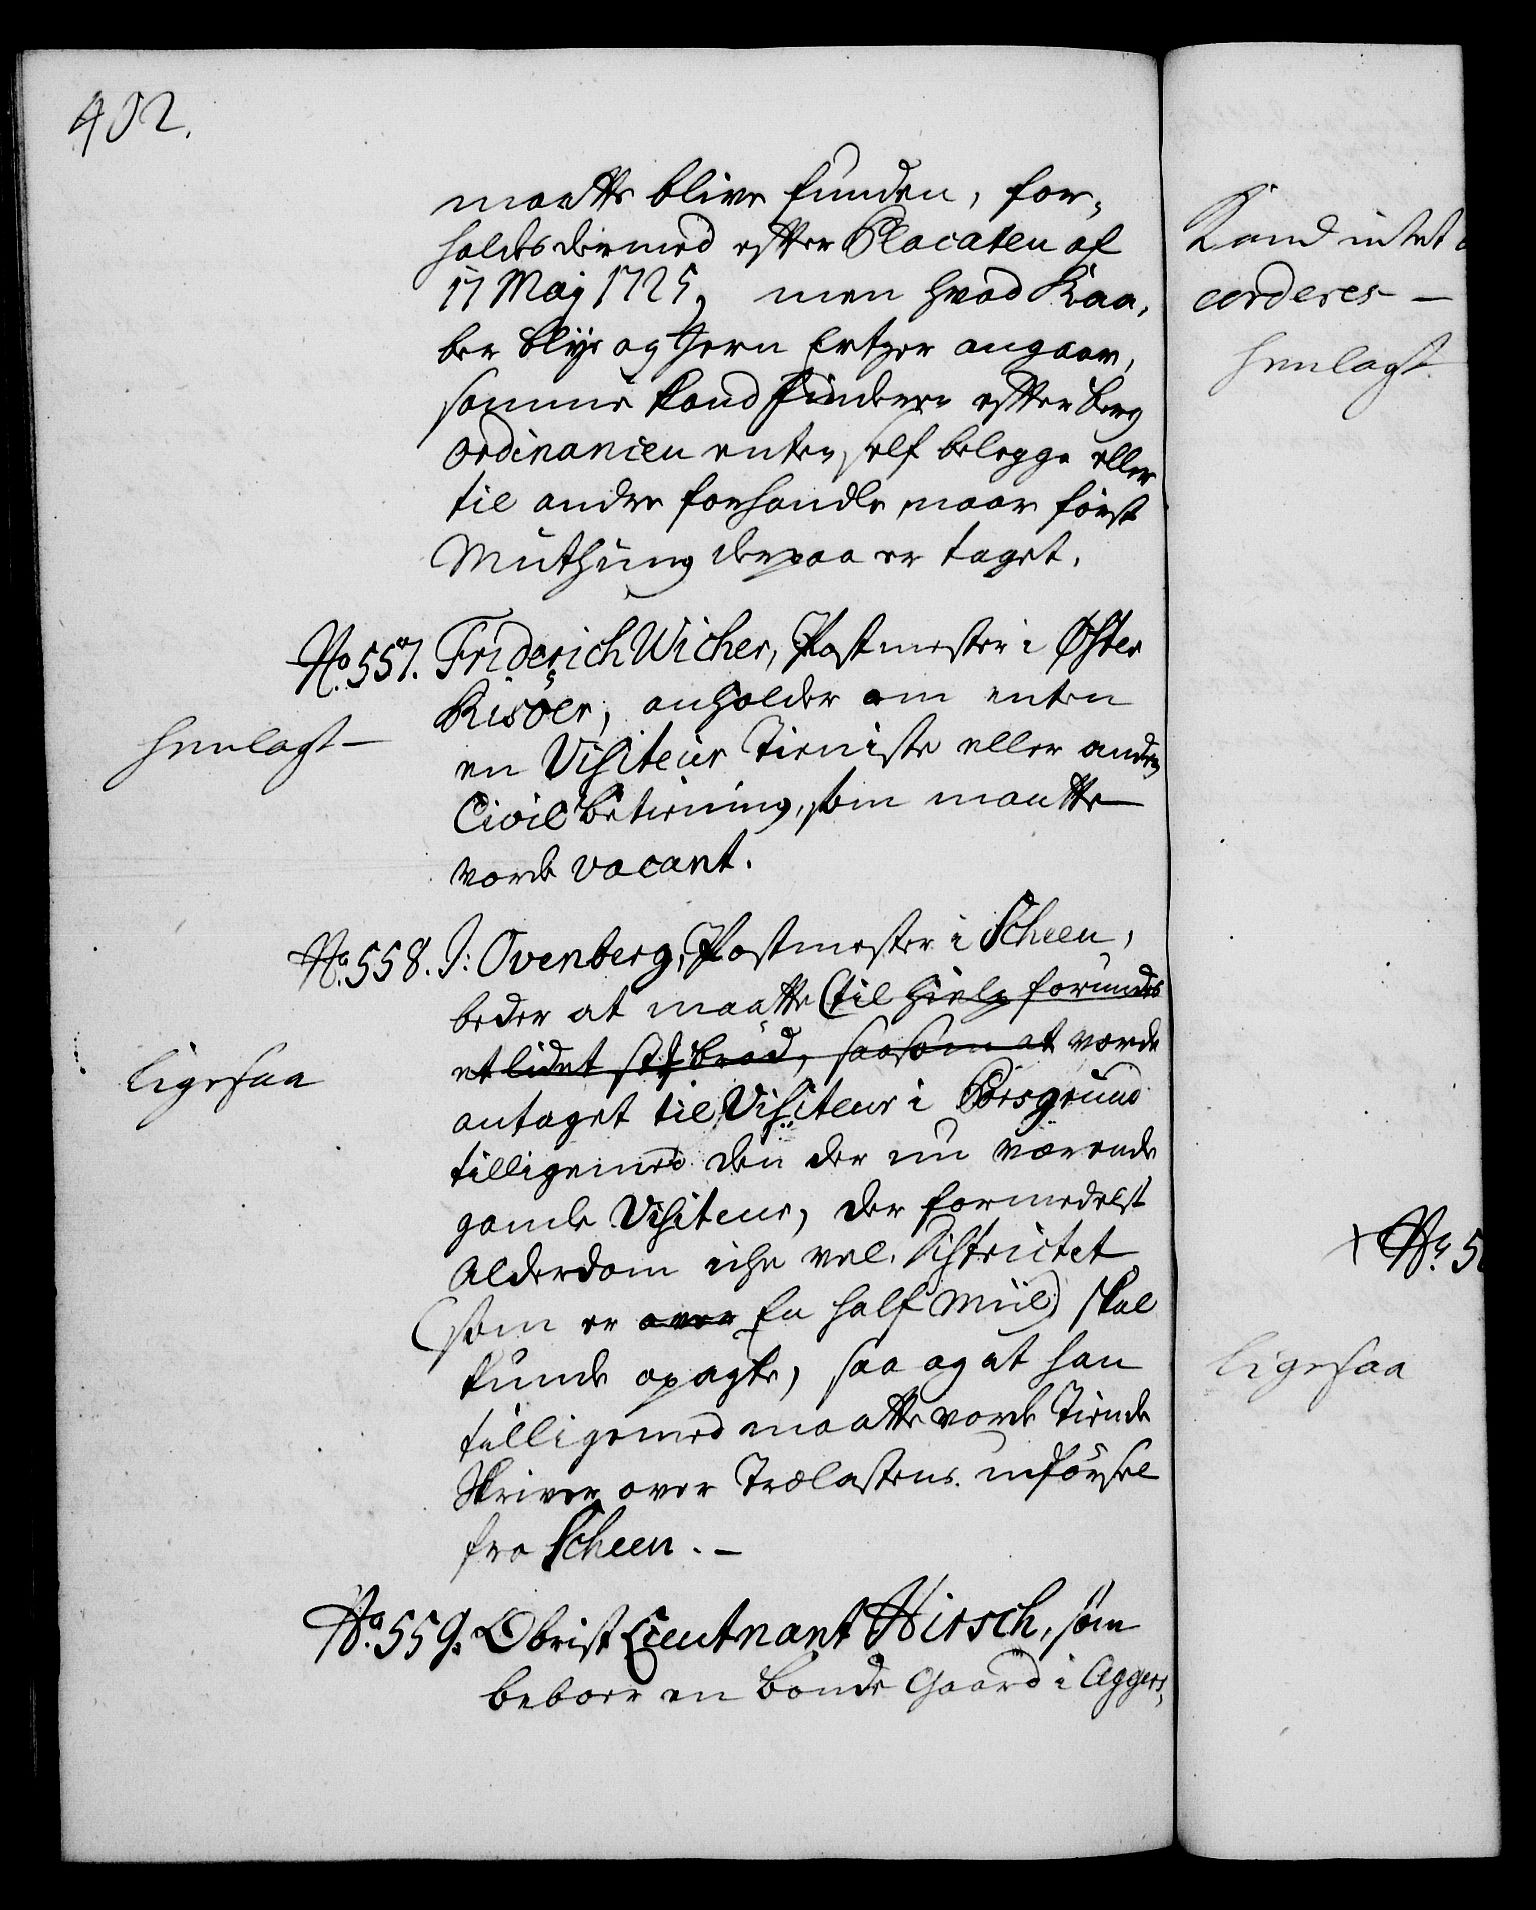 402.
maatte blive funden, for-
holdes dermed efter Placaten af
17 Maj 1725, men hvad Kaa-
ber blye og Jern Ertzer angaaer,
samme kand finderen efter berg
ordinancen enten self belegge eller
til andre forhandle, naar först
Muthung derpaa er taget.
No. 557. Friderich Wicher, Postmester i Öster
Risöer, anholder om enten
henlagt —
en Visiteur Tieniste eller anden
Civil betiening, som maatte
vorde vacant.
No. 558. J: Ovenberg, Postmester i Scheen,
beder at maatte (til hielp forundes
et lidet st: bröd, saasom at vorde
ligesaa
antaget til Visiteur i Porsgrund
tilligemed den der nu værende
gamle Visiteur, der formedelst
Alderdom iche vel. Districtet
(som er over En half Miil) skal
kunde opagte, saa og at han
tilligemed maatte vorde Tiende
Skriver over Trælastens udförsel
fra Scheen. —
No. 559. Obrist Lieutnant Hirsch, som
beboer en bonde Gaard i Aggers-
Kand intet
corderes —
henlagt
+ No. 5
ligesaa